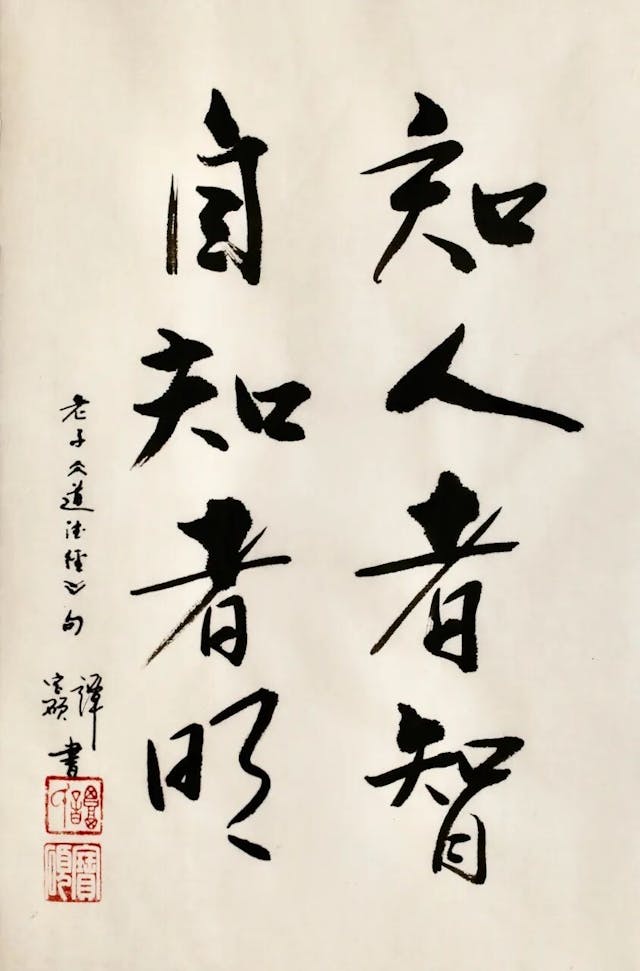 知人者智
自知者明
老子《道德经》句
譚宝硕書